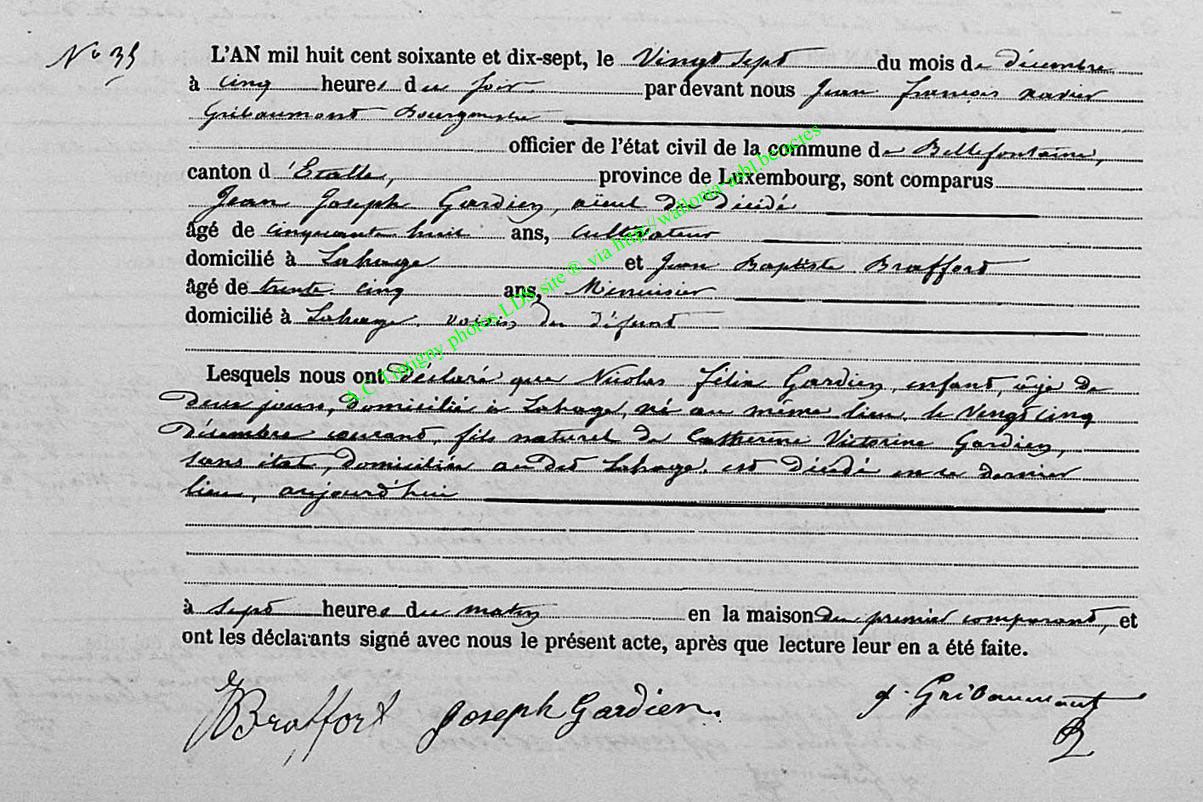 No 35
L'AN mil huit cent soixante et dix-sept, le Vingt sept du mois de décembre
à cinq heures du soir par devant nous Jean françois xavier
Gribaumont Bourgmestre
officier de l'état civil de la commune de Bellefontaine,
canton d'Etalle, province de Luxembourg, sont comparus
Jean Joseph Gardien, aïeul du décédé
âgé de cinquante huit ans, cultivateur
domicilié à Lahage et Jean Baptiste Braffort
âgé de trente cinq ans, Menuisier
domicilié à Lahage, voisin du défunt
Lesquels nous ont déclaré que Nicolas félix Gardien, enfant, âgé de
deux jours, domicilié à Lahage, né au même lieu, le vingt cinq
décembre courant, fils naturel de Catherine Victorine Gardien,
sans état, domiciliée au dit Lahage, est décédé en ce dernier
lieu, aujourd'hui
à sept heures du matin en la maison du premier comparant, et
ont les déclarants signé avec nous le présent acte, après que lecture leur en a été faite.
JBraffort Joseph Gardien. Gribaumont
A.C. Tintigny photos LDS site ® via http://wallonia-asbl.be/actes